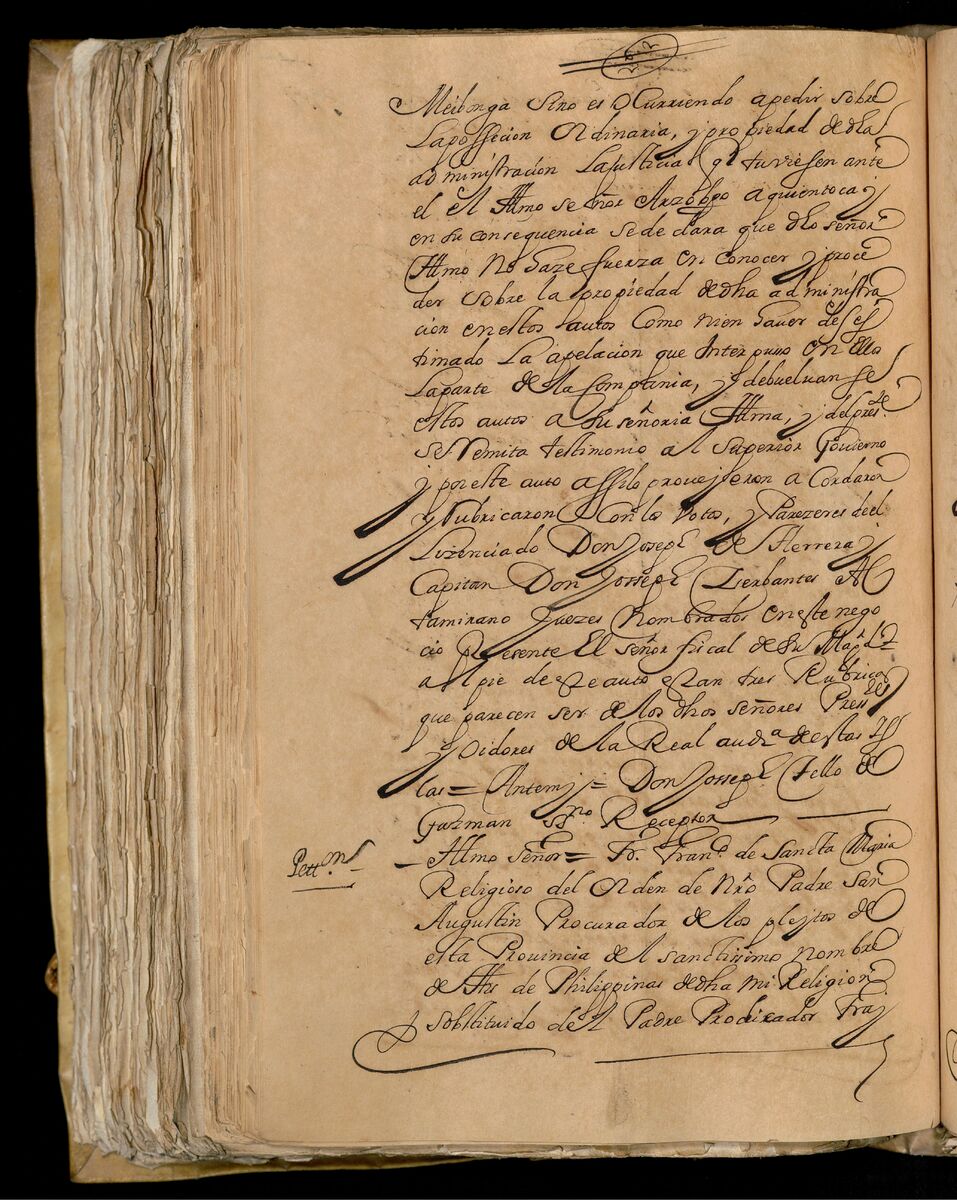 Meibonga sino es Ocurriendo apedir sobre
Lapossecion Ordinaria, y propiedad de dha
administracion Lajusticia q̃ tuviesen ante
el el Illmo señor Arzobpo aquientoca y
en su consequencia sede clara que dho señor
Illmo No haze fuerza en conocer y proce
der sobre la propiedad de dha administra
cion enestos autos Como nien haver deses
timado La apelacion que Interpuso en ellos
Laparte de la Compania, y debuelvan se
estos autos a Su señoria Illma, y delpres.te
se Remita testimonio al superior Govierno
y por este auto assilo proveyeron a Cordaron
y Rubricaron Con los Votos, y Parezeres de el
Lizenciado Don Joseph de Herrera y
Capitan Don Joseph Zerbantes Al
tamirano Juezes Nombrados eneste nego
cio Presente El señor fiscal de Su Magd =
al pie de este auto estan tres Rubricas
que parecen ser de los dhos señores Press.te
y oidores de la Real aud.a de estas Ys
las = Antemy = Don Joseph Tello de
Guzman Ss.no Receptor
Pett.on
Illmo señor = Fr. Fran.co de Sancta Maria
Religioso del Orden de Nrõ Padre San
Augustin Procurador de los pleytos de
esta Provincia del sanctissimo nombre
de Jhs de Philippinas de dha mi Religion
y sobstituido de el Padre Procurador Fray